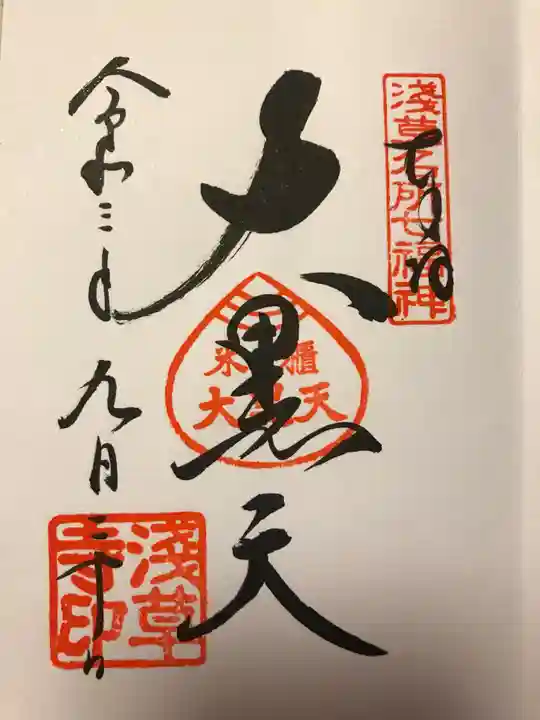 奉拝
淺草名所七福神
大黒天
米櫃
大黒天
令和三年
九月三十日
淺草
寺印